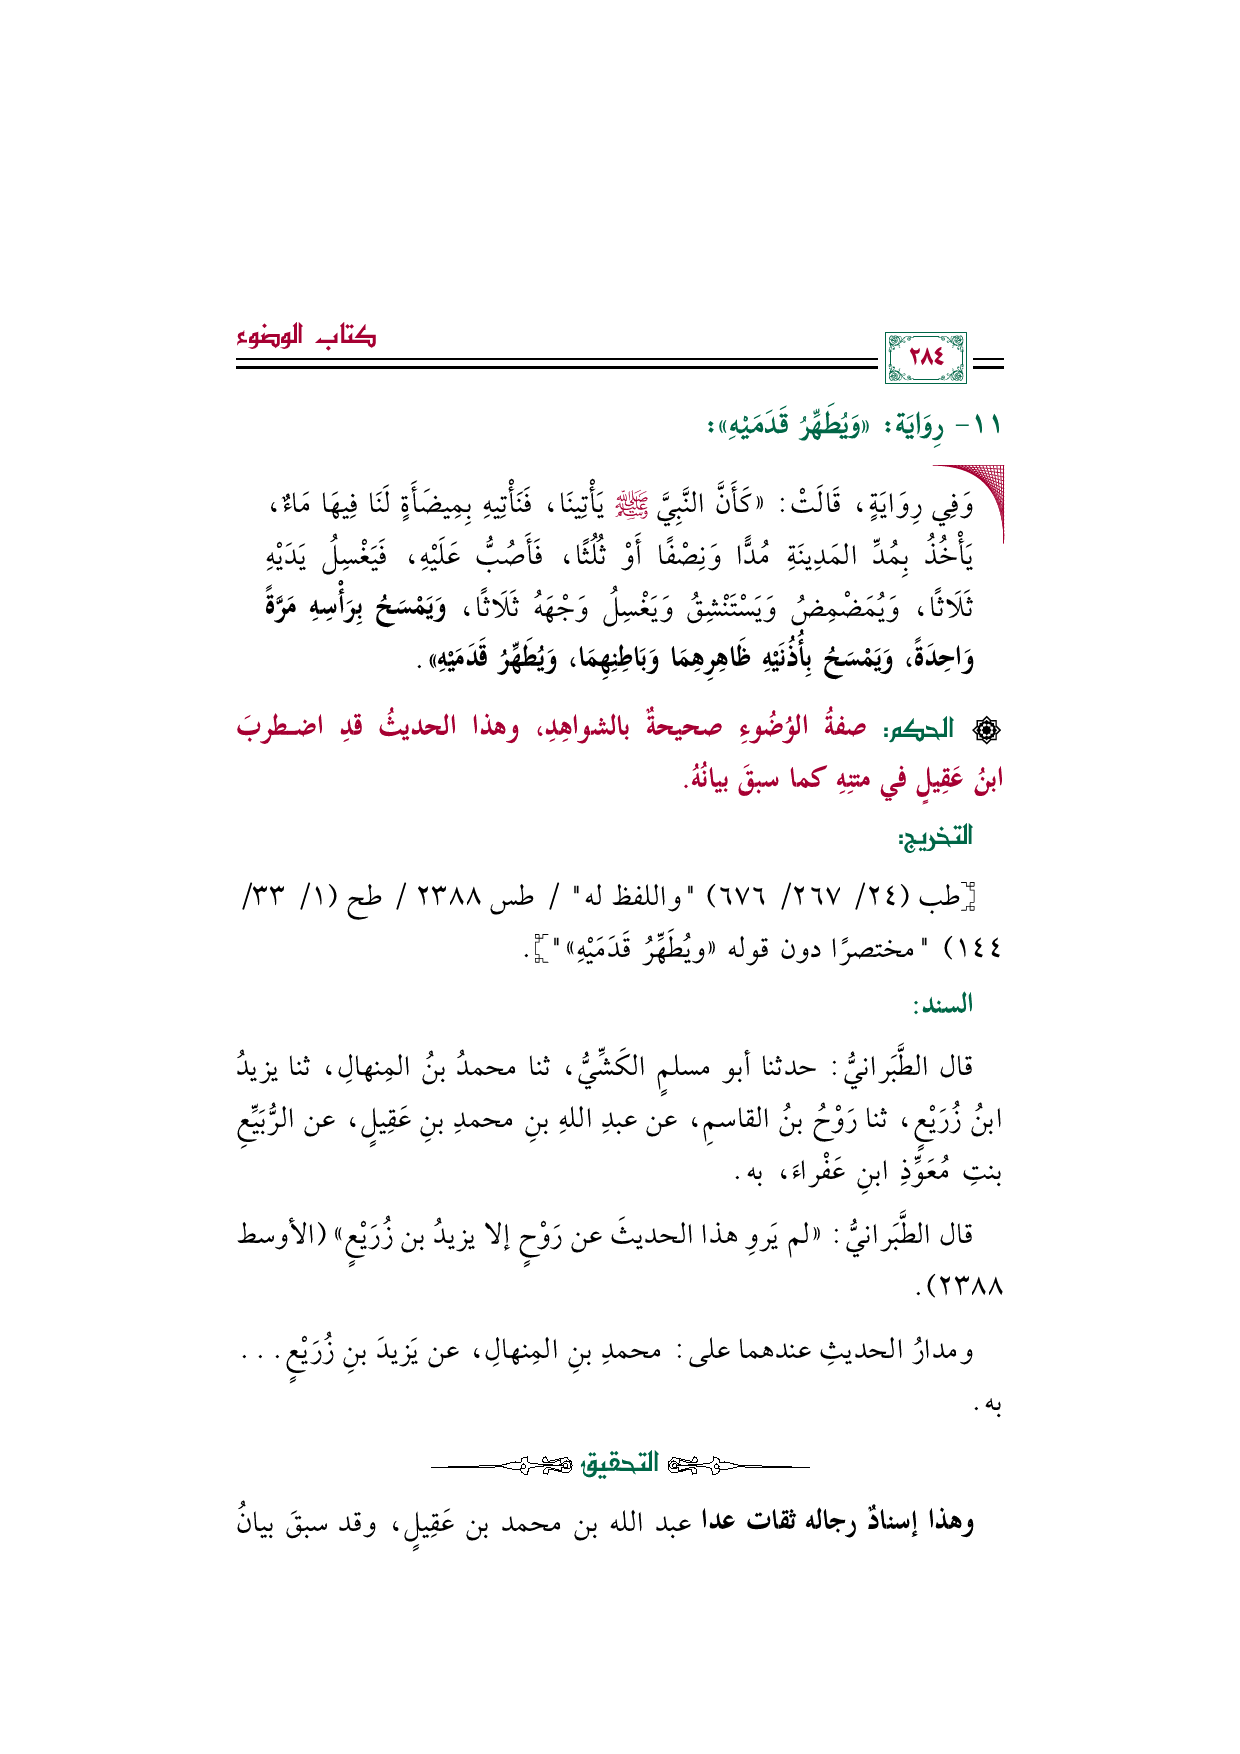 كتاب الوضوء
٢٨٤
١١- رِوَايَة: «وَيُطَهِّرُ قَدَمَيْهِ»:
وَفِي رِوَايَةٍ، قَالَتْ: «كَأَنَّ النَّبِيَّ ﷺ يَأْتِينَا، فَنَأْتِيهِ بِمِيضَأَةٍ لَنَا فِيهَا مَاءٌ،
يَأْخُذُ بِمُدِّ المَدِينَةِ مُدًّا وَنِصْفًا أَوْ ثُلُثًا، فَأَصُبُّ عَلَيْهِ، فَيَغْسِلُ يَدَيْهِ
ثَلَاثًا، وَيُمَضْمِضُ وَيَسْتَنْشِقُ وَيَغْسِلُ وَجْهَهُ ثَلَاثًا، وَيَمْسَحُ بِرَأْسِهِ مَرَّةً
وَاحِدَةً، وَيَمْسَحُ بِأُذُنَيْهِ ظَاهِرِهِمَا وَبَاطِنِهِمَا، وَيُطَهِّرُ قَدَمَيْهِ».
الحكم: صفةُ الوُضُوءِ صحيحةٌ بالشواهِدِ، وهذا الحديثُ قدِ اضطربَ
ابنُ عَقِيلٍ في متنِهِ كما سبقَ بيانُهُ.
التخريج:
[طب (٢٤/ ٢٦٧/ ٦٧٦) "واللفظ له" / طس ٢٣٨٨ / طح (١/ ٣٣/
١٤٤) "مختصرًا دون قوله «ويُطَهِّرُ قَدَمَيْهِ»"].
السند:
قال الطَّبَرانيُّ: حدثنا أبو مسلمٍ الكَشِّيُّ، ثنا محمدُ بنُ المِنهالِ، ثنا يزيدُ
ابنُ زُرَيْعٍ، ثنا رَوْحُ بنُ القاسمِ، عن عبدِ اللهِ بنِ محمدِ بنِ عَقِيلٍ، عن الرُّبَيِّعِ
بنتِ مُعَوِّذِ ابنِ عَفْراءَ، به.
قال الطَّبَرانيُّ: «لم يَروِ هذا الحديثَ عن رَوْحٍ إلا يزيدُ بن زُرَيْعٍ» (الأوسط
٢٣٨٨).
ومدارُ الحديثِ عندهما على: محمدِ بنِ المِنهالِ، عن يَزيدَ بنِ زُرَيْعٍ...
به.
التحقيق
وهذا إسنادٌ رجاله ثقات عدا عبد الله بن محمد بن عَقِيلٍ، وقد سبقَ بيانُ